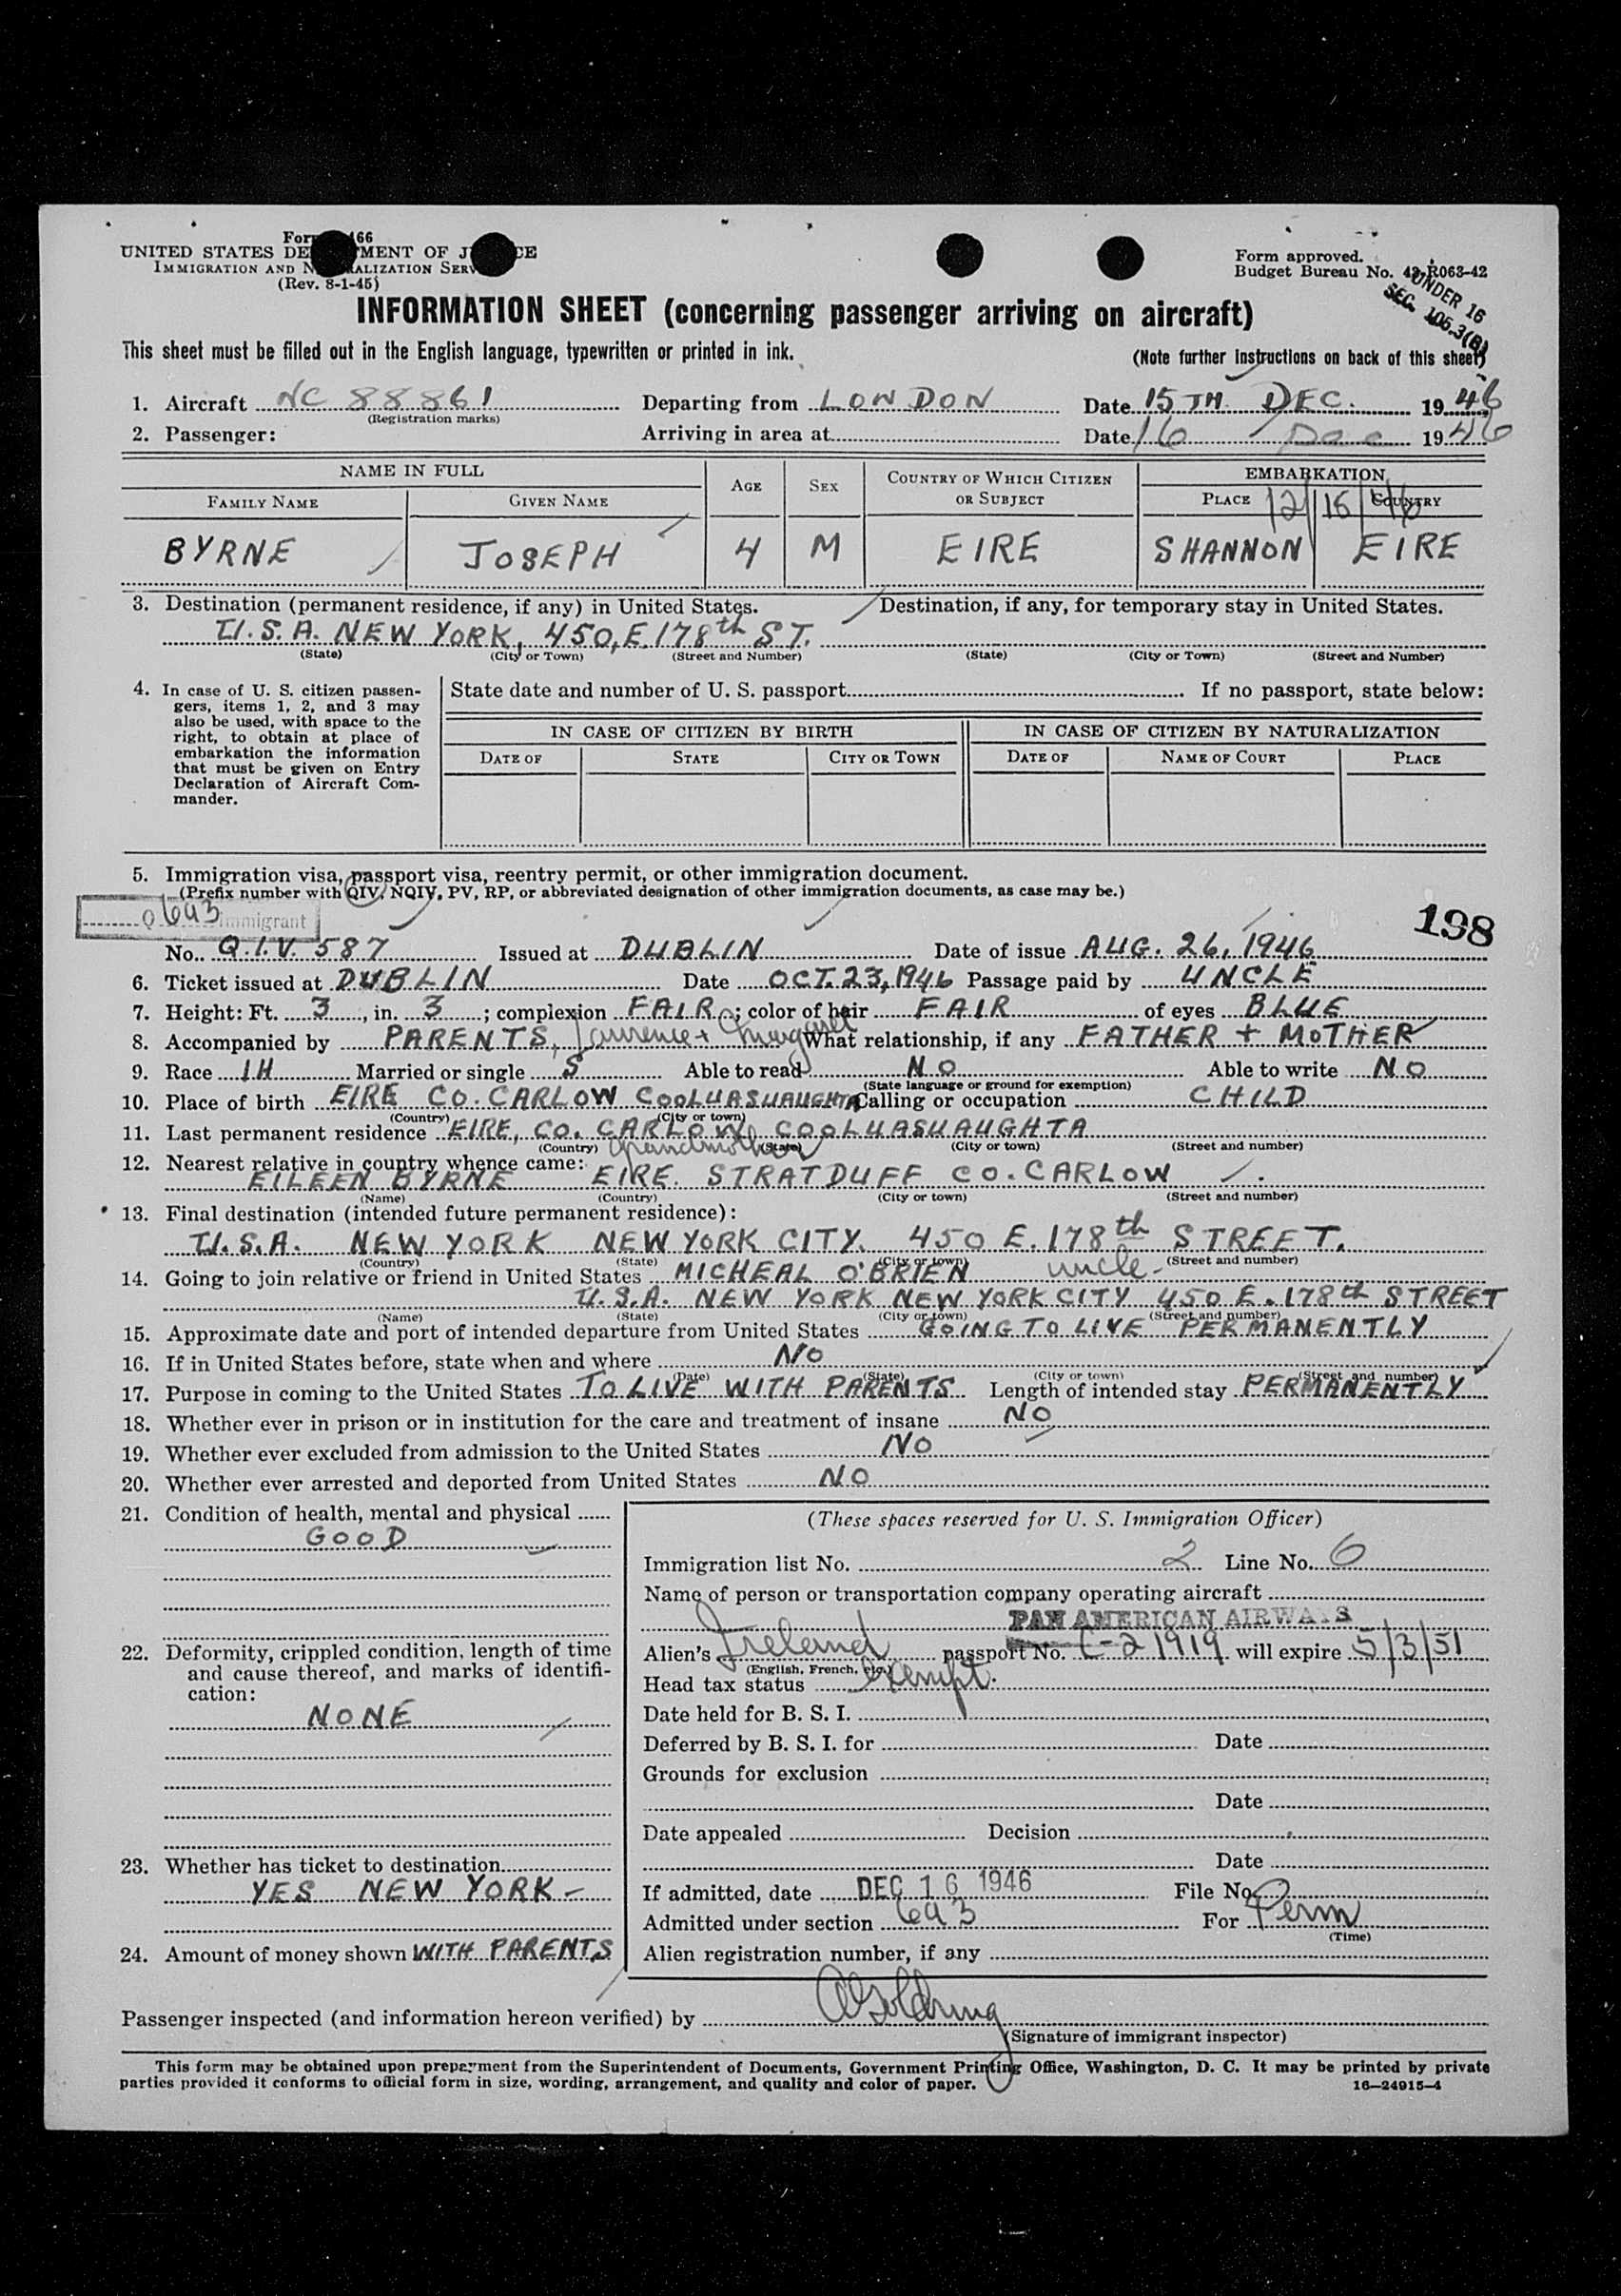 UNITED STATES DE MENT OF J CE
IMMIGRATION AND N ALIZATION SERV
(Rev. 8-1-45)
Form approved.
Budget Bureau No. 43-R063-42
UNDER 16
SEC. 105.3(B)
INFORMATION SHEET (concerning passenger arriving on aircraft)
This sheet must be filled out in the English language, typewritten or printed in ink. (Note further instructions on back of this sheet)
1. Aircraft NC 88861 Departing from LONDON Date 15TH DEC. 1946
(Registration marks)
2. Passenger: Arriving in area at Date 16 Dec 1946
NAME IN FULL AGE SEX COUNTRY OF WHICH CITIZEN OR SUBJECT EMBARKATION
FAMILY NAME GIVEN NAME PLACE COUNTRY
12/15/46
BYRNE JOSEPH 4 M EIRE SHANNON EIRE
3. Destination (permanent residence, if any) in United States. Destination, if any, for temporary stay in United States.
U.S.A. NEW YORK, 450, E 178th ST.
(State) (City or Town) (Street and Number) (State) (City or Town) (Street and Number)
4. In case of U. S. citizen passen-
gers, items 1, 2, and 3 may
also be used, with space to the
right, to obtain at place of
embarkation the information
that must be given on Entry
Declaration of Aircraft Com-
mander.
State date and number of U. S. passport If no passport, state below:
IN CASE OF CITIZEN BY BIRTH IN CASE OF CITIZEN BY NATURALIZATION
DATE OF STATE CITY OR TOWN DATE OF NAME OF COURT PLACE
5. Immigration visa, passport visa, reentry permit, or other immigration document.
(Prefix number with QIV, NQIV, PV, RP, or abbreviated designation of other immigration documents, as case may be.)
Q 6a3 immigrant
198
No. Q.I.V. 587 Issued at DUBLIN Date of issue AUG. 26, 1946
6. Ticket issued at DUBLIN Date OCT. 23, 1946 Passage paid by UNCLE
7. Height: Ft. 3, in. 3; complexion FAIR; color of hair FAIR of eyes BLUE
8. Accompanied by PARENTS, Laurence + Margaret What relationship, if any FATHER + MOTHER
9. Race IH Married or single S Able to read NO Able to write NO
(State language or ground for exemption)
10. Place of birth EIRE CO. CARLOW COOLUASUAUGHTA Calling or occupation CHILD
(Country) (City or town)
11. Last permanent residence EIRE, CO. CARLOW COOLUASUAUGHTA
(Country) (State) (City or town) (Street and number)
12. Nearest relative in country whence came: Grandmother
EILEEN BYRNE EIRE. STRATDUFF CO. CARLOW
(Name) (Country) (City or town) (Street and number)
13. Final destination (intended future permanent residence):
U.S.A. NEW YORK NEW YORK CITY. 450 E. 178th STREET.
(Country) (State) (City or town) (Street and number)
14. Going to join relative or friend in United States MICHEAL O'BRIEN uncle-
U.S.A. NEW YORK NEW YORK CITY 450 E. 178th STREET
(Name) (State) (City or town) (Street and number)
15. Approximate date and port of intended departure from United States GOING TO LIVE PERMANENTLY
16. If in United States before, state when and where NO
(Date) (State) (City or town) (Street and number)
17. Purpose in coming to the United States TO LIVE WITH PARENTS Length of intended stay PERMANENTLY
18. Whether ever in prison or in institution for the care and treatment of insane NO
19. Whether ever excluded from admission to the United States NO
20. Whether ever arrested and deported from United States NO
21. Condition of health, mental and physical
GOOD
22. Deformity, crippled condition, length of time
and cause thereof, and marks of identifi-
cation:
NONE
23. Whether has ticket to destination
YES NEW YORK -
24. Amount of money shown WITH PARENTS
(These spaces reserved for U. S. Immigration Officer)
Immigration list No. 2 Line No. 6
Name of person or transportation company operating aircraft
PAN AMERICAN AIRWAYS
Alien's Ireland passport No. C-21919 will expire 5/3/51
(English, French, etc.)
Head tax status exempt.
Date held for B. S. I.
Deferred by B. S. I. for Date
Grounds for exclusion
Date
Date appealed Decision
Date
If admitted, date DEC 16 1946 File No.
Admitted under section 6a3 For Perm
(Time)
Alien registration number, if any
Passenger inspected (and information hereon verified) by
(Signature of immigrant inspector)
This form may be obtained upon prepayment from the Superintendent of Documents, Government Printing Office, Washington, D. C. It may be printed by private
parties provided it conforms to official form in size, wording, arrangement, and quality and color of paper. 16—24915-4